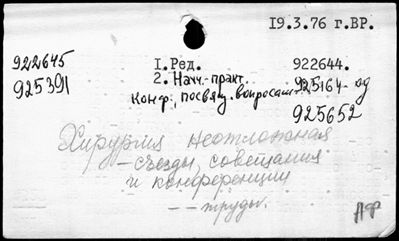 19.3.76 г.ВР.
922645 1.Ред. 922644.
925391 2. Научн.-практ. 925164-од
конф., посвящ. вопросам 925652
Хирургия неотложная
– съезды, совещания
и конференции
– – труды.